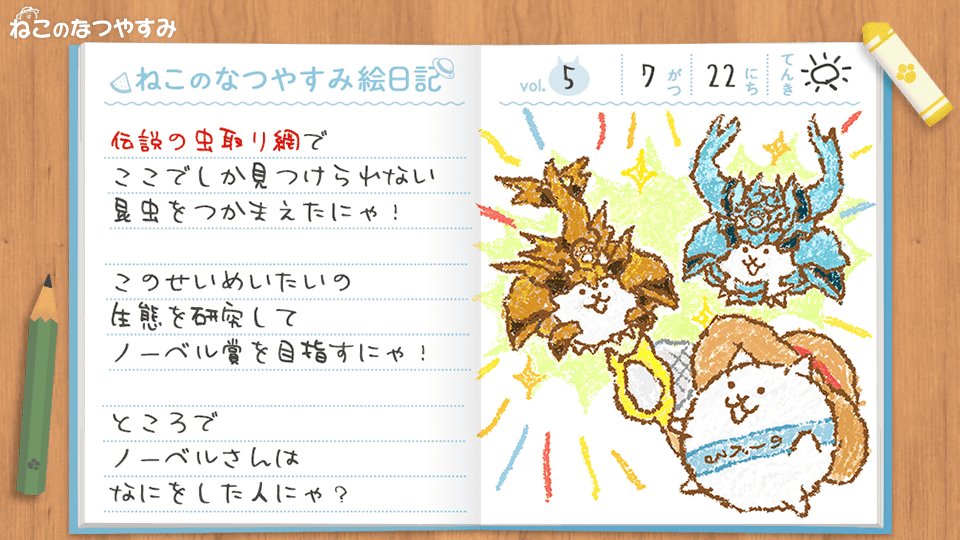 ねこのなつやすみ
ねこのなつやすみ絵日記
vol. 5 7 がつ 22 にち てんき
伝説の虫取り網で
ここでしか見つけられない
昆虫をつかまえたにゃ！
このせいめいたいの
生態を研究して
ノーベル賞を目指すにゃ！
ところで
ノーベルさんは
なにをした人にゃ？